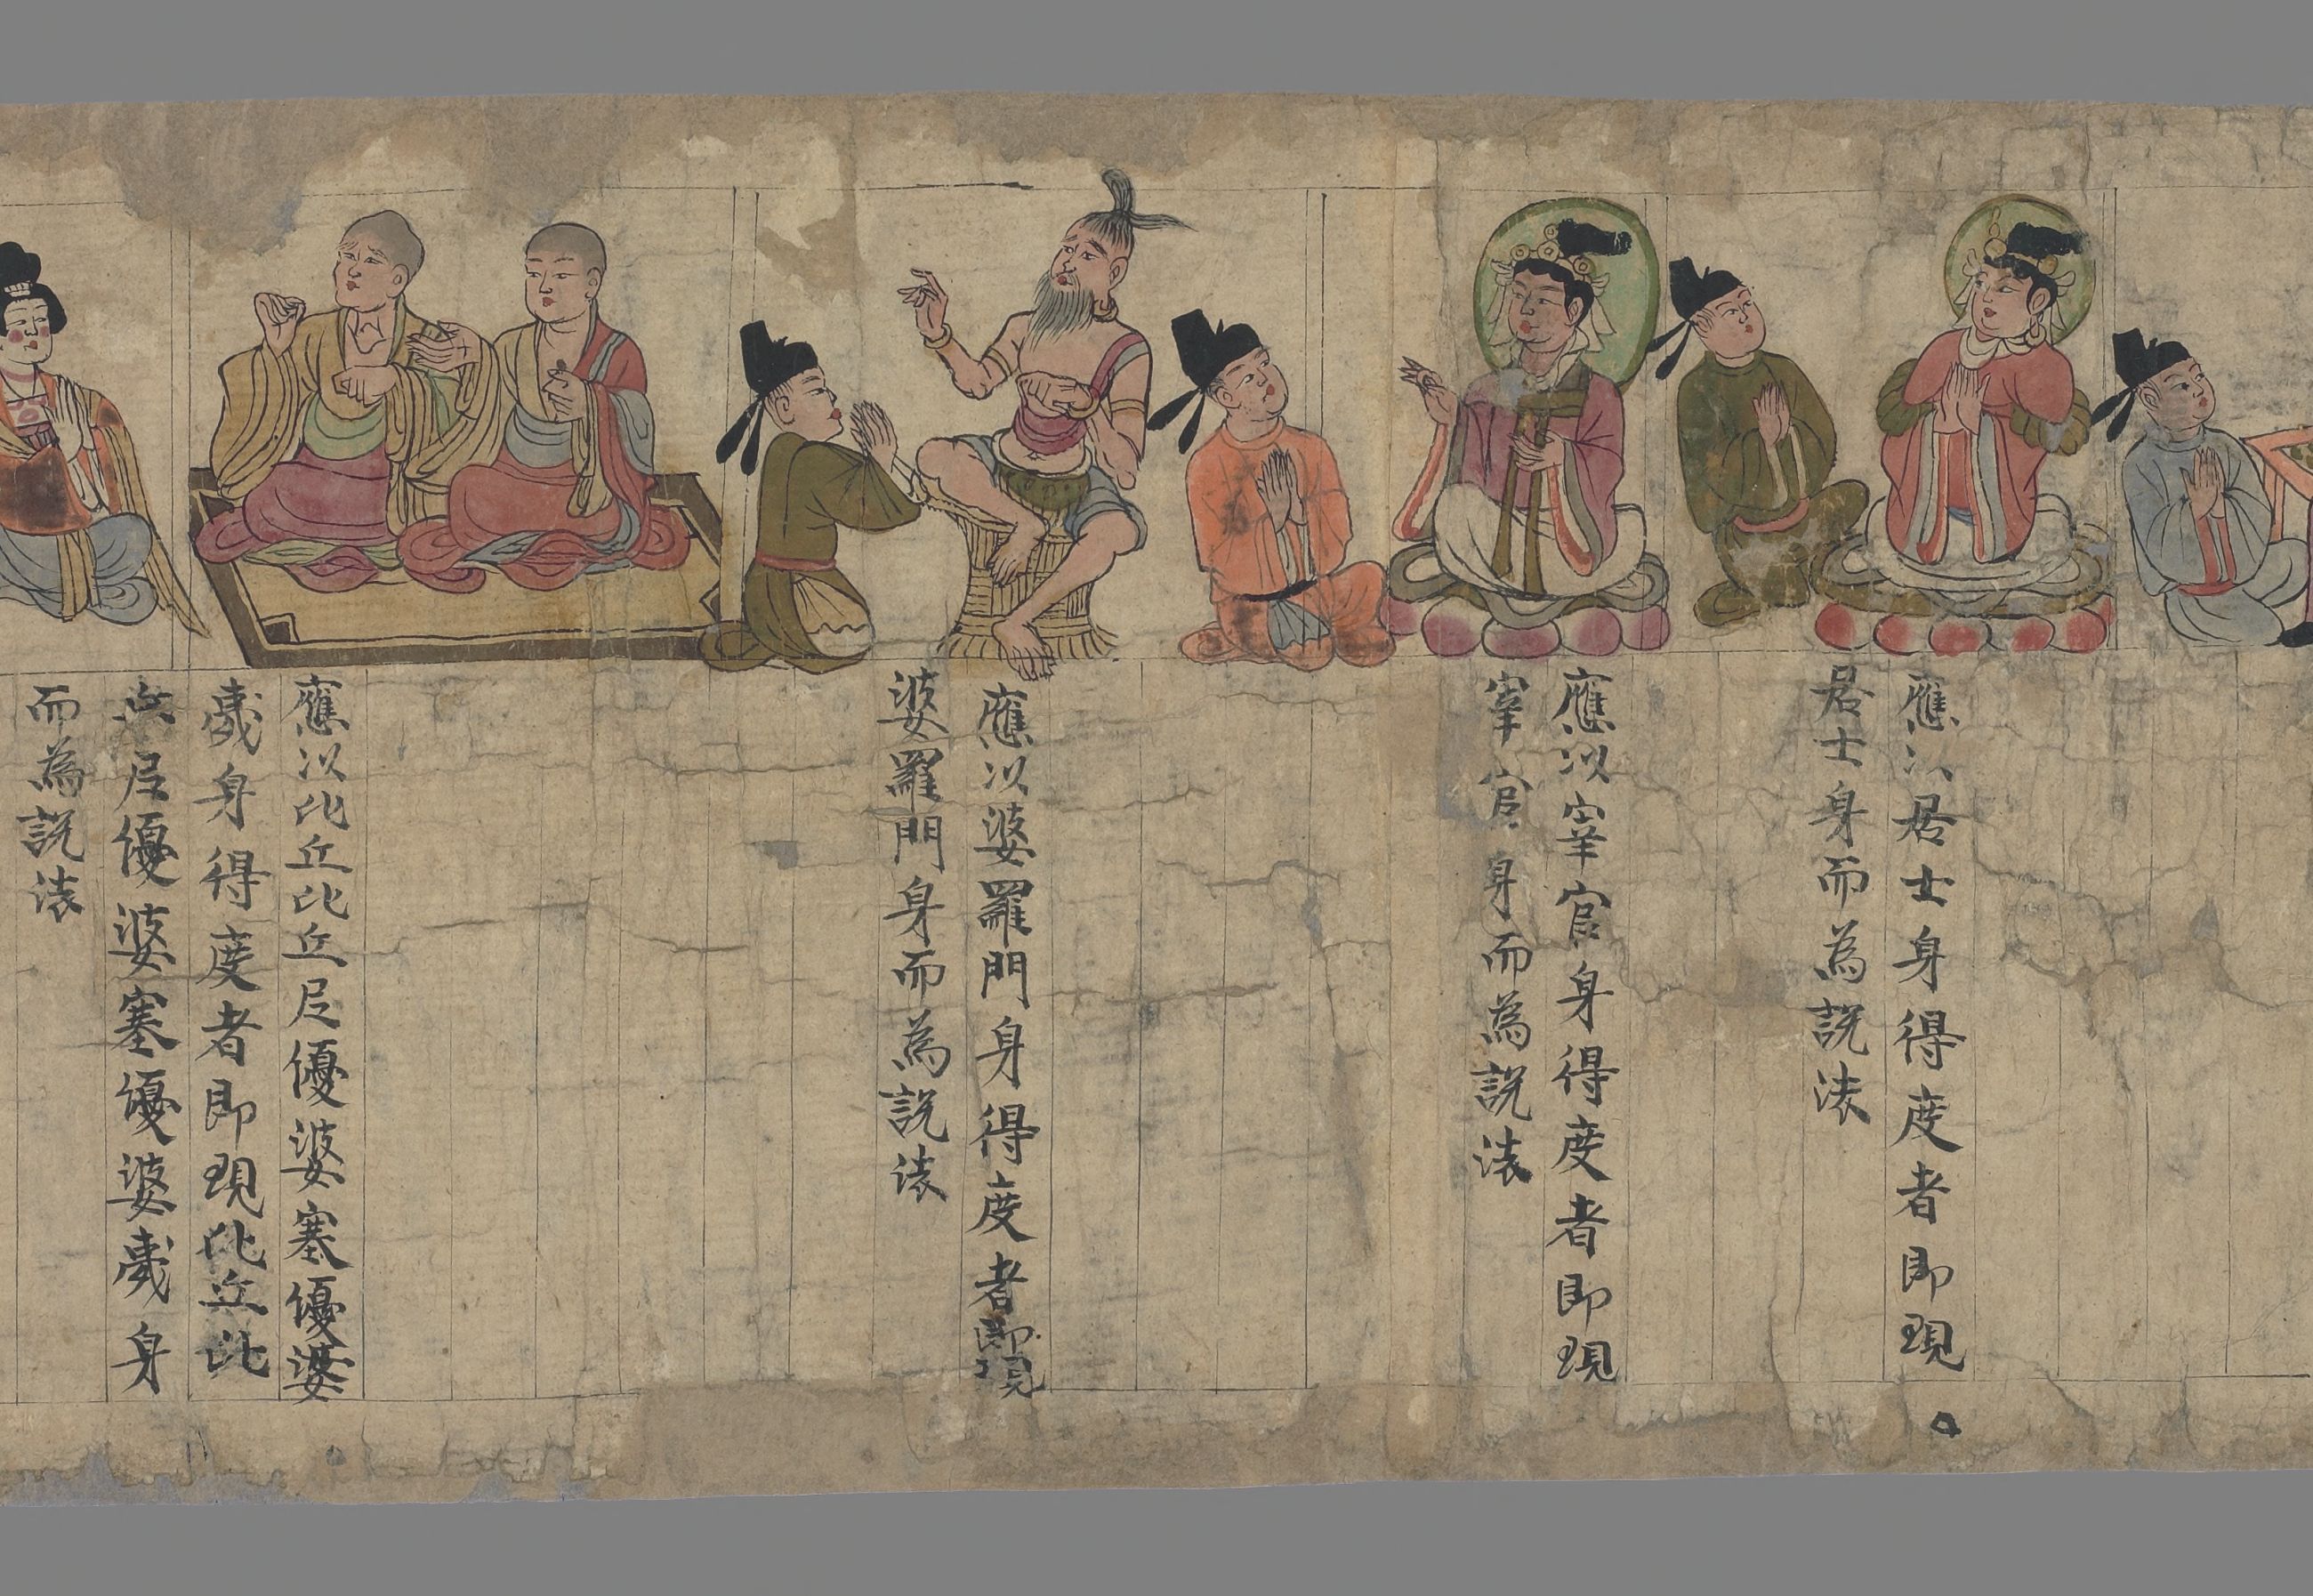 應以居士身得度者即現
居士身而為説法
應以宰官身得度者即現
宰官身而為説法
應以婆羅門身得度者即現
婆羅門身而為説法
應以比丘比丘尼優婆塞優婆
夷身得度者即現比丘比
丘尼優婆塞優婆夷身
而為説法